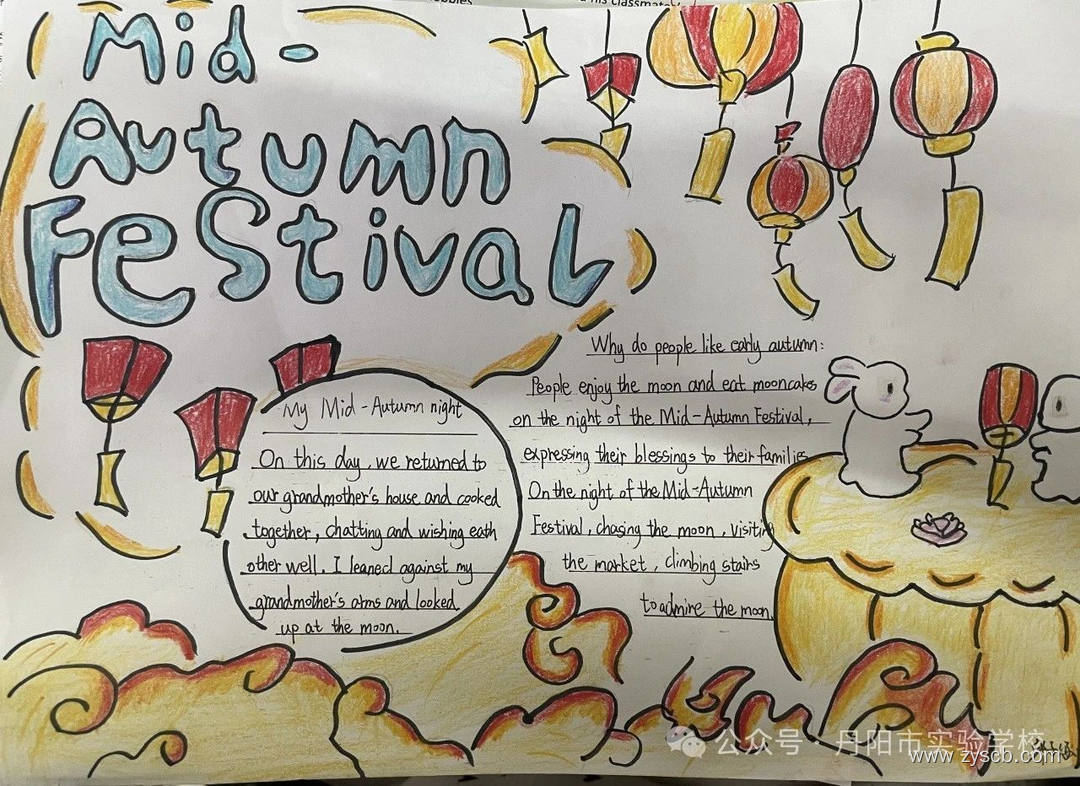 Mid-
Autumn
Festival
My Mid-Autumn night
On this day, we returned to
our grandmother's house and cooked
together, chatting and wishing eath
other well. I leaned against my
grandmother's arms and looked
up at the moon.
Why do people like early autumn:
People enjoy the moon and eat mooncakes
on the night of the Mid-Autumn Festival,
expressing their blessings to their families
On the night of the Mid-Autumn
Festival, chasing the moon, visiting
the market, climbing stairs
to admire the moon.
公众号·丹阳市实验学校
www.zyscb.com